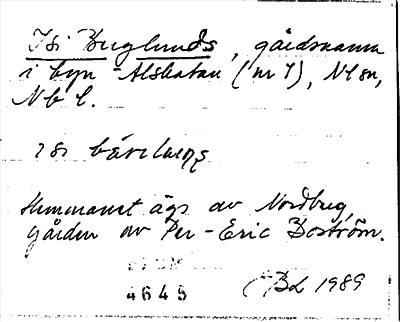 Isi Berglunds, gårdsnamn
i byn Alskatan (nr 1), Nlsn,
Nbl.
isi bä
Hemmanet ägs av Nordberg,
gården av Per-Eric Boström.
4645
CBL 1989